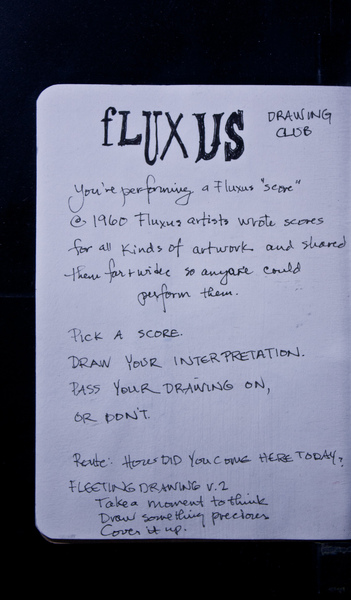 fLUXUS DRAWING
CLUB
You're performing a Fluxus "score"
@ 1960 Fluxus artists wrote scores
for all kinds of artwork and shared
them far + wide so anyone could
perform them.
PICK A SCORE.
DRAW YOUR INTERPRETATION.
PASS YOUR DRAWING ON,
OR DON'T.
Route: HOW DID YOU COME HERE TODAY?
FLEETING DRAWING V.2
Take a moment to think
Draw something precious
Cover it up.